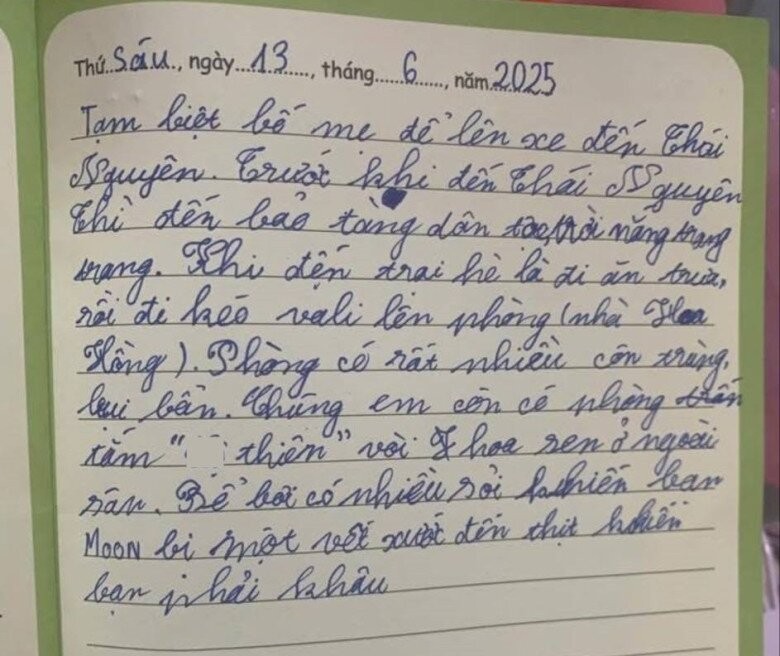 Thứ Sáu, ngày 13, tháng 6, năm 2025
Tạm biệt bố mẹ để lên xe đến Thái
Nguyên. Trước khi đến Thái Nguyên
thì đến bảo tàng dân trời nắng trang
trang. Khi đến trại hè là đi ăn trưa,
rồi đi kéo vali lên phòng (nhà Hoa
Hồng). Phòng có rất nhiều côn trùng,
bụi bẩn. Chúng em còn có phòng
tắm " thiên" với hoa sen ở ngoài
sân. Bể bơi có nhiều sỏi khiến bạn
MOON bị một vết xướt đến thịt khiến
bạn phải khâu